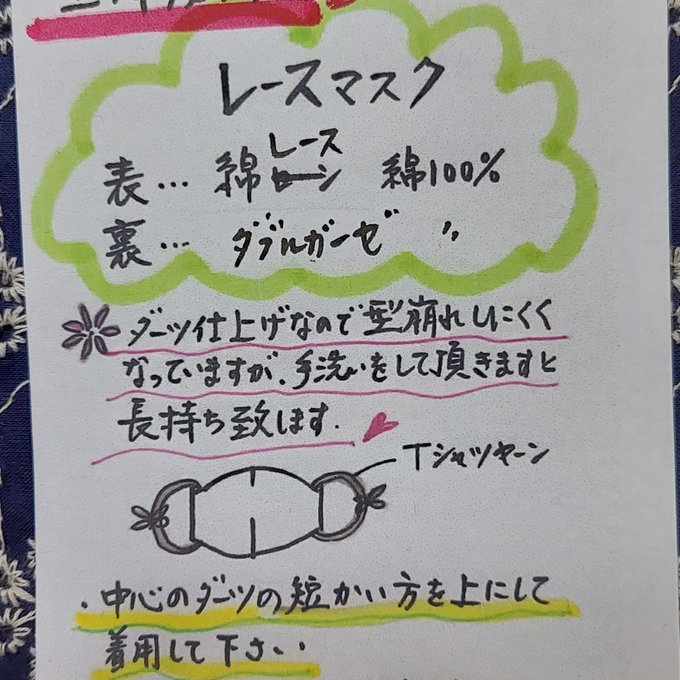 レースマスク
レース
表… 綿ローン 綿100%
裏… ダブルガーゼ 〃
ダーツ仕上げなので型崩れしにくく
なっていますが、手洗いをして頂きますと
長持ち致します.
Tシャツヤーン
・中心のダーツの短かい方を上にして
着用して下さい